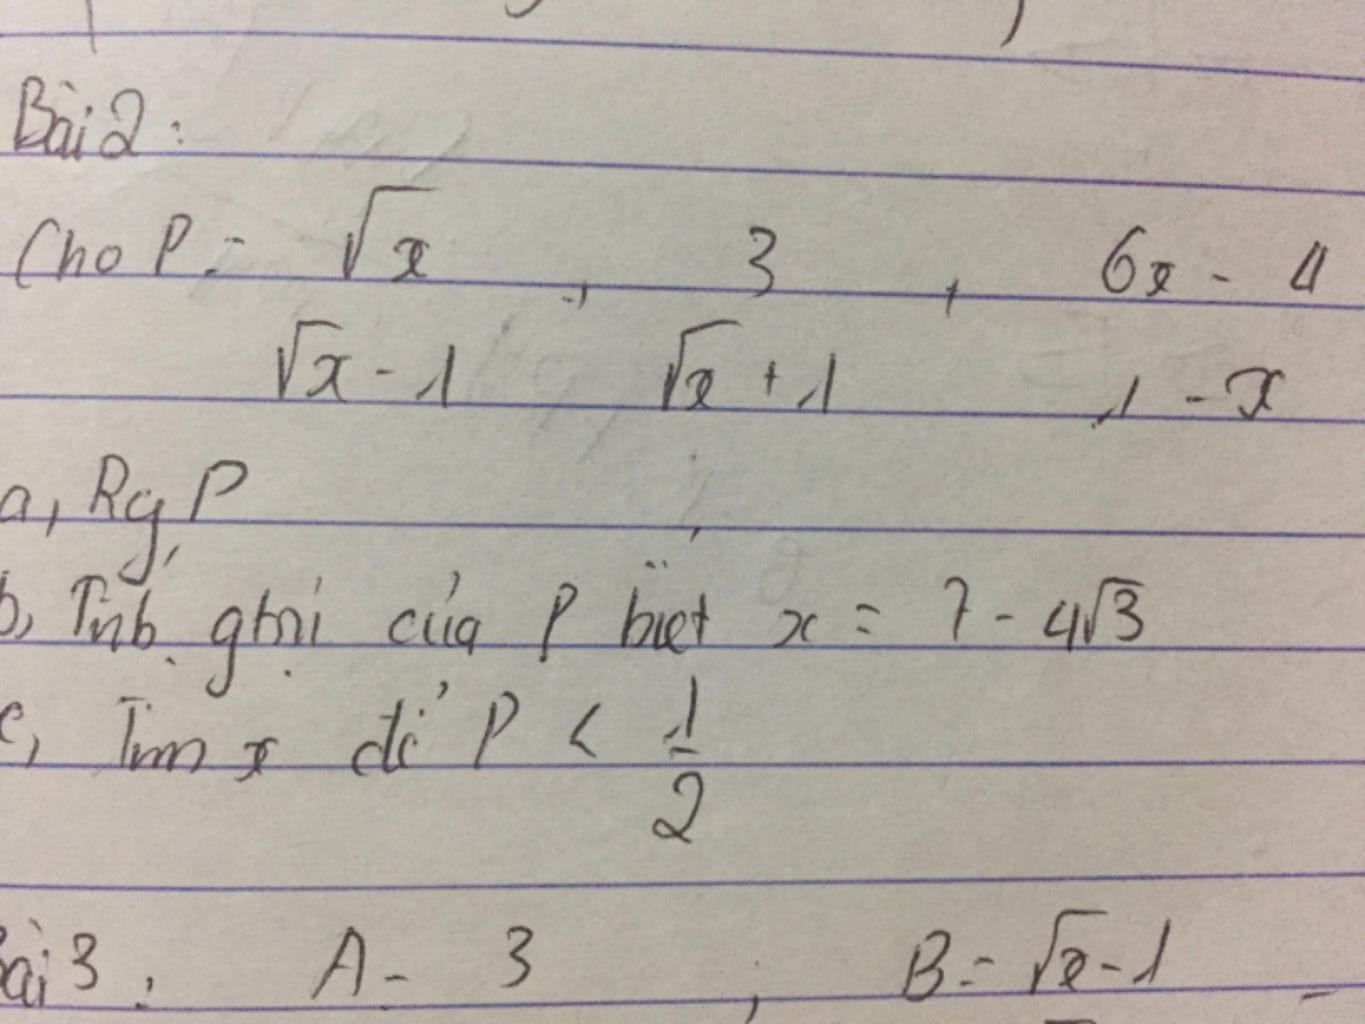 Bài 2:
Cho P = √x , 3 + 6x - 4
√x - 1 √x + 1 1 - x
a, Rg P
b, Tính gtrị của P biết x = 7 - 4√3
c, Tìm x để P < 1
2
Bài 3: A = 3 ; B = √x - 1